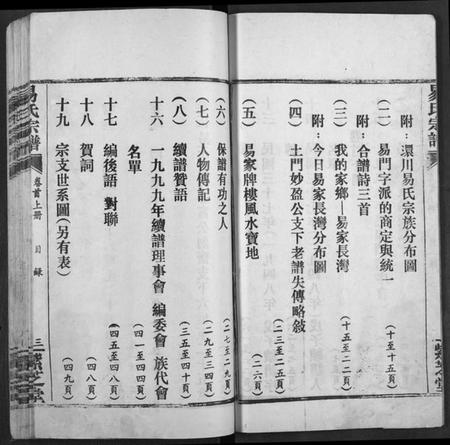 易氏宗譜
附：還川易氏宗族分布圖
（二）易門字派的商定與統一（十至十五頁）
附：合譜詩三首
（三）我的家鄉—易家長灣（十五至二二頁）
附：今日易家長灣分布圖
（四）土門妙盈公支下老譜失傳略敘（二三至二五頁）
（五）易家牌樓風水寶地（二六頁）
（六）保譜有功之人（二七至二九頁）
（七）人物傳記（二九至三四頁）
（八）續譜贊語（三五至四十頁）
十六 一九九九年續譜理事會 編委會 族代會
名單（四一至四四頁）
十七 編後語 對聯（四五至四八頁）
十八 賀詞（四八頁）
十九 宗支世系圖（另有表）（四九頁）
易氏宗譜
卷首上册 目錄 三